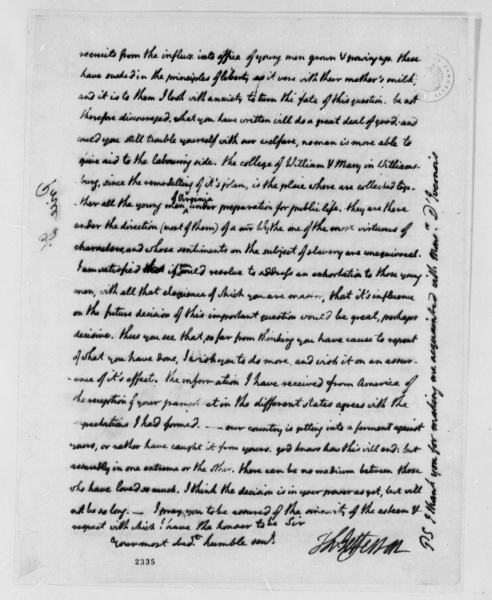 recruits from the influx into office of young men grown & growing up. these
have sucked in the principles of liberty as it were with their mother's milk;
and it is to them I look with anxiety to turn the fate of this question. be not
therefore discouraged. what you have written will do a great deal of good: and
could you still trouble yourself with our welfare, no man is more able to
give aid to the labouring side. the college of William & Mary in Williams-
burg, since the remodelling of it's plan, is the place where are collected toge-
ther all the young men of Virginia under preparation for public life. they are there
under the direction (most of them) of a mr Wythe one of the most virtuous of
characters, and whose sentiments on the subject of slavery are unequivocal.
I am satisfied if you could resolve to address an exhortation to those young
men, with all that eloquence of which you are master, that it's influence
on the future decision of this important question would be great, perhaps
decisive. thus you see that, so far from thinking you have cause to repent
of what you have done, I wish you to do more, and wish it on an assur-
-ance of it's effect. the information I have received from America of
the reception of your pamphlet in the different states agrees with the
expectations I had formed. — our country is getting into a ferment against
yours, or rather have caught it from yours. god knows how this will end: but
assuredly in one extreme or the other. there can be no medium between those
who have loved so much. I think the decision is in your power as yet, but will
not be so long. — I pray you to be assured of the sincerity of the esteem &
respect with which I have the honour to be Sir
Your most obedt. humble servt.
Th: Jefferson
PS. I thank you for making me acquainted with Monsr. D'Ivernois
Dr. Price
2335